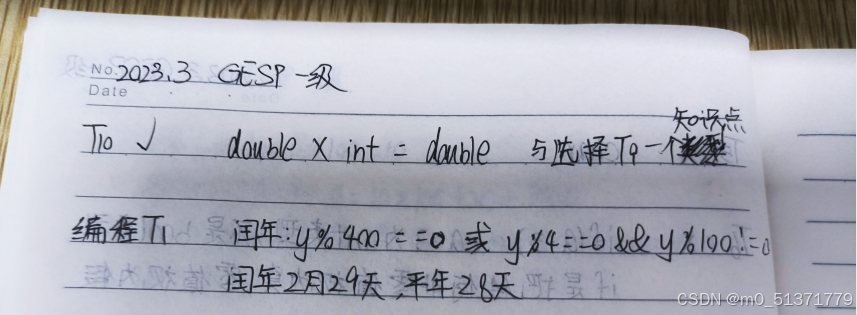 No. 2023.3 GESP 一级
Date
T10 ✓ double × int = double 与选择T9一个知识点
编程T1 闰年: y%400==0 或 y%4==0 && y%100!=0
闰年2月29天,平年28天
CSDN @m0_51371779